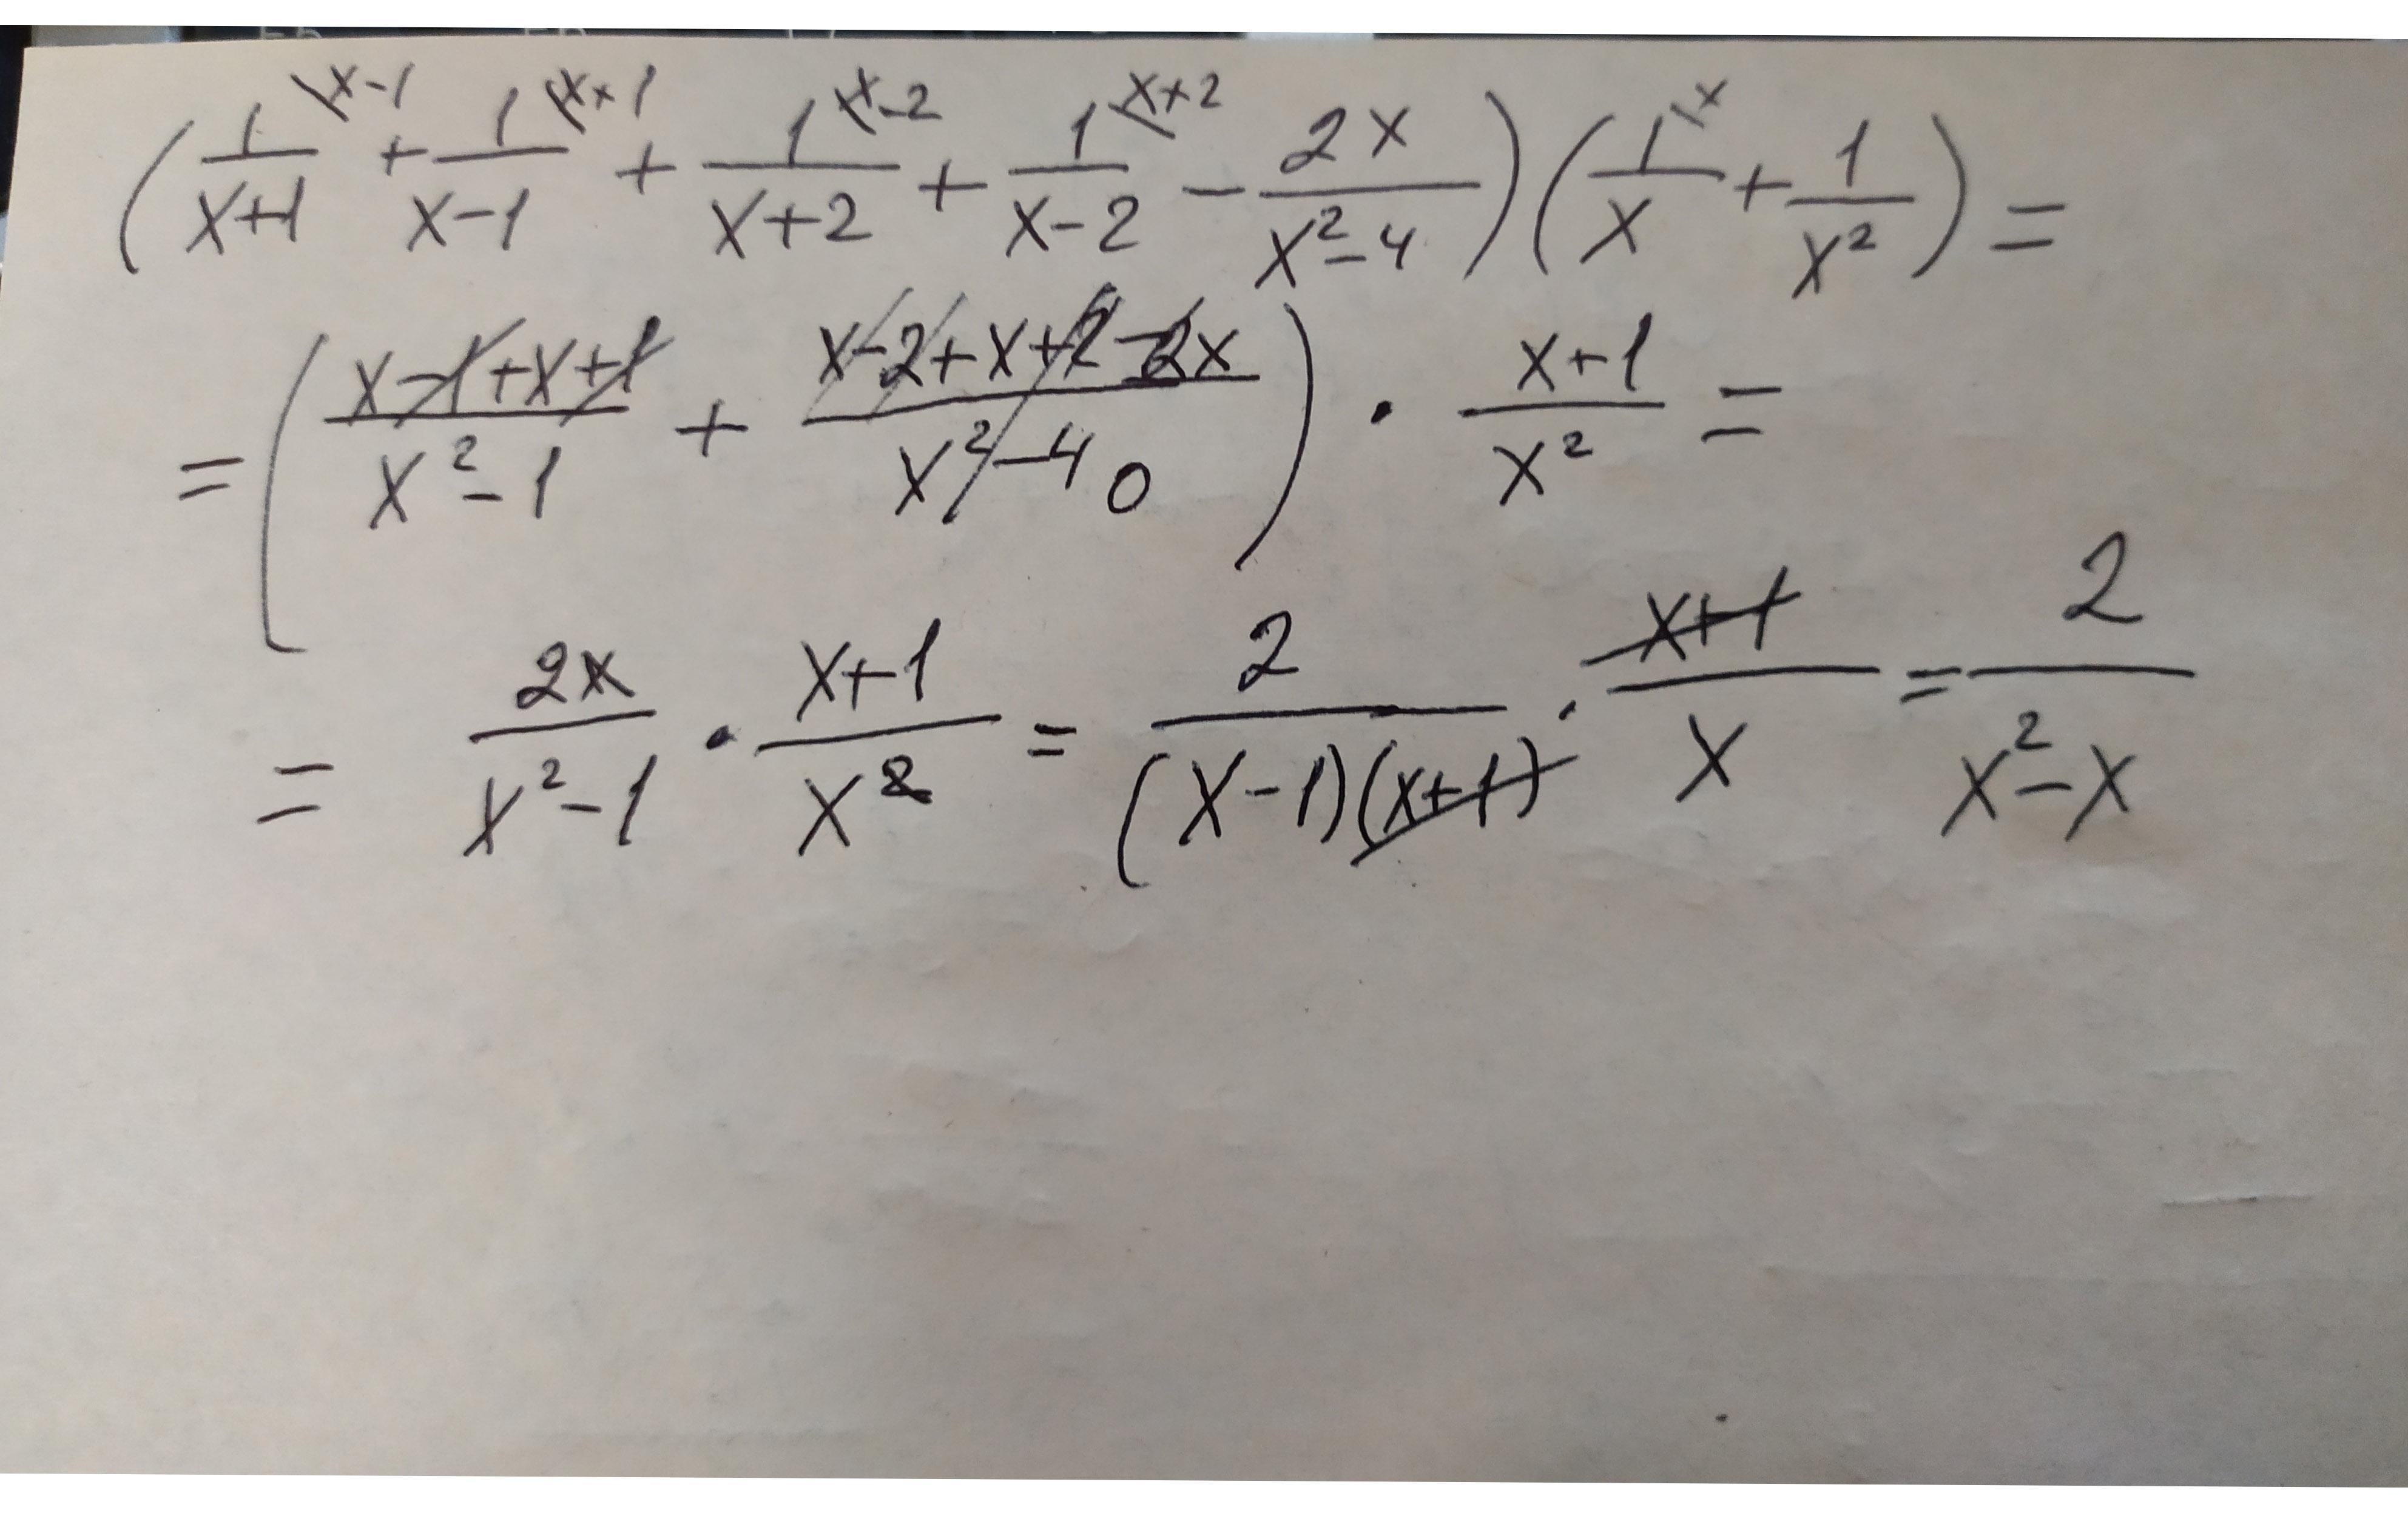 (1/(x+1) \x-1 + 1/(x-1) \x+1 + 1/(x+2) \x-2 + 1/(x-2) \x+2 - 2x/(x²-4))(1/x \x + 1/x²) =
= ((x-1+x+1)/(x²-1) + (x-2+x+2-2x)/(x²-4) 0) · (x+1)/x² =
= 2x/(x²-1) · (x+1)/x² = 2/((x-1)(x+1)) · (x+1)/x = 2/(x²-x)